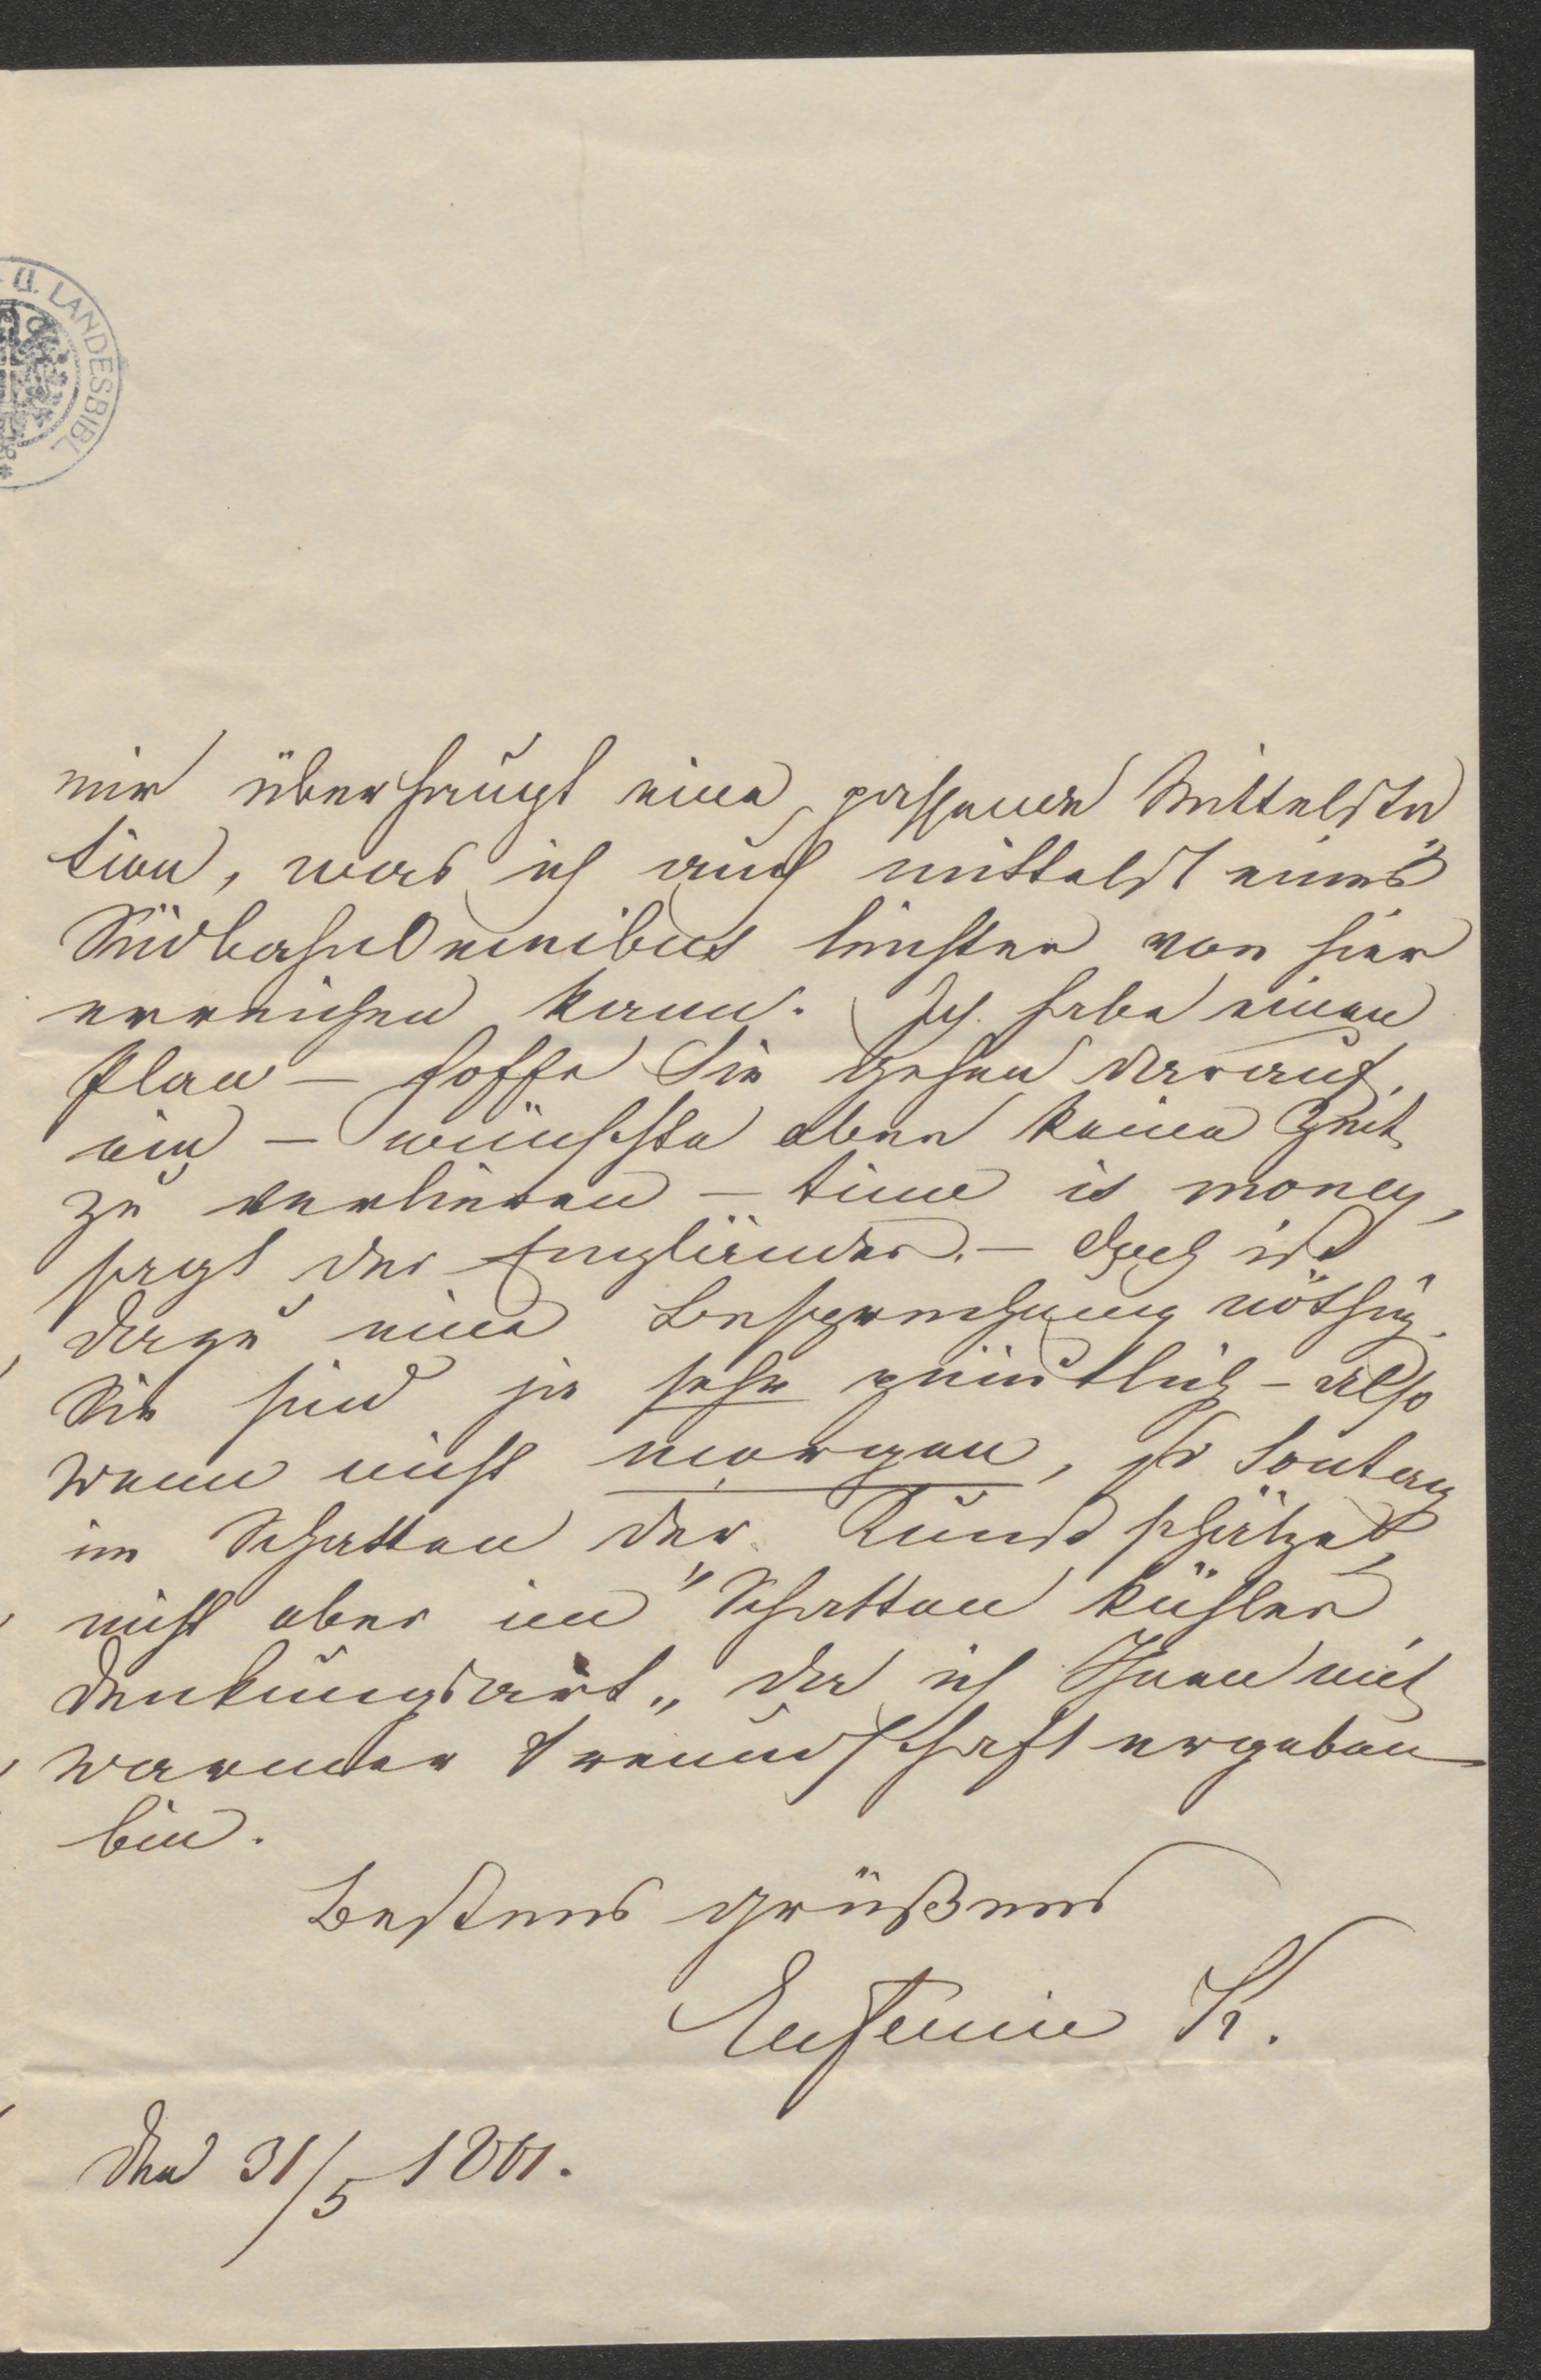 U. LANDESBIBL.
mir überhaupt eine passende Mittelsta
tion, was ich auch mittelst eines
Südbahnomnibus leichter von hier
erreichen kann. Ich habe einen
Plan – hoffe Sie gehen darauf
ein – wünschte aber keine Zeit
zu verlieren – time is money,
sagt der Engländer. – Doch ist
dazu eine Besprechung nöthig.
Sie sind ja sehr pünktlich – also
wenn nicht morgen, so Sontag
im Schatten der Kunstschätze,
nicht aber im "Schatten kühler
Denkungsart„ da ich Ihnen mit
warmer Freundschaft ergeben
bin.
Bestens grüßend
Eugenie K.
Den 31/5 1861.